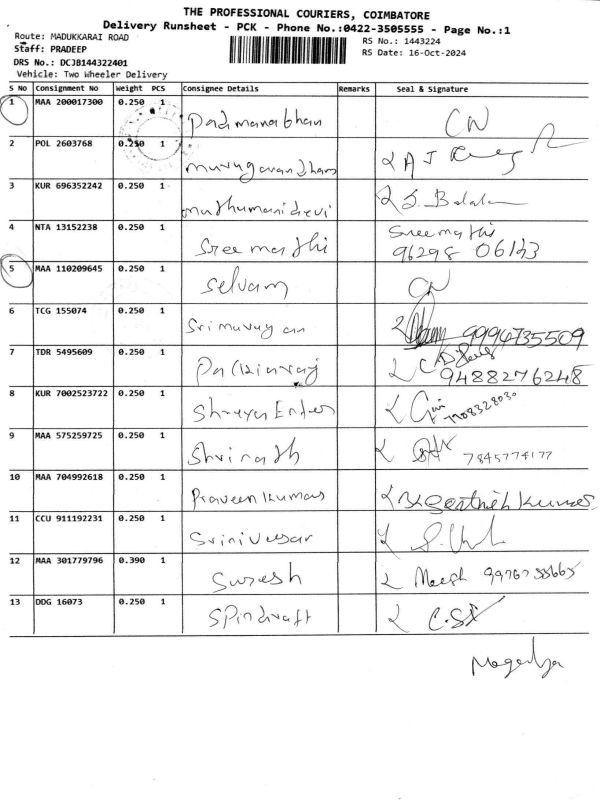 THE PROFESSIONAL COURIERS, COIMBATORE
Delivery Runsheet - PCK - Phone No.:0422-3505555 - Page No.:1
Route: MADUKKARAI ROAD
RS No.: 1443224
Staff: PRADEEP
RS Date: 16-Oct-2024
DRS No.: DCJB144322401
Vehicle: Two Wheeler Delivery
S No Consignment No Weight PCS Consignee Details Remarks Seal & Signature
1 MAA 200017300 0.250 1 Padmanabhan CN
2 POL 2603768 0.250 1
3 KUR 696352242 0.250 1 Muthumanidevi
4 NTA 13152238 0.250 1 Sreemathi Sreemathi
96298 06133
5 MAA 110209645 0.250 1 Selvam CN
6 TCG 155074 0.250 1 Srimurugan 9994735509
7 TDR 5495609 0.250 1
9488276248
8 KUR 7002523722 0.250 1 7708328030
9 MAA 575259725 0.250 1 Shrinath 7845774177
10 MAA 704992618 0.250 1 Praveenkumar
11 CCU 911192231 0.250 1
12 MAA 301779796 0.390 1 Suresh
13 DDG 16073 0.250 1